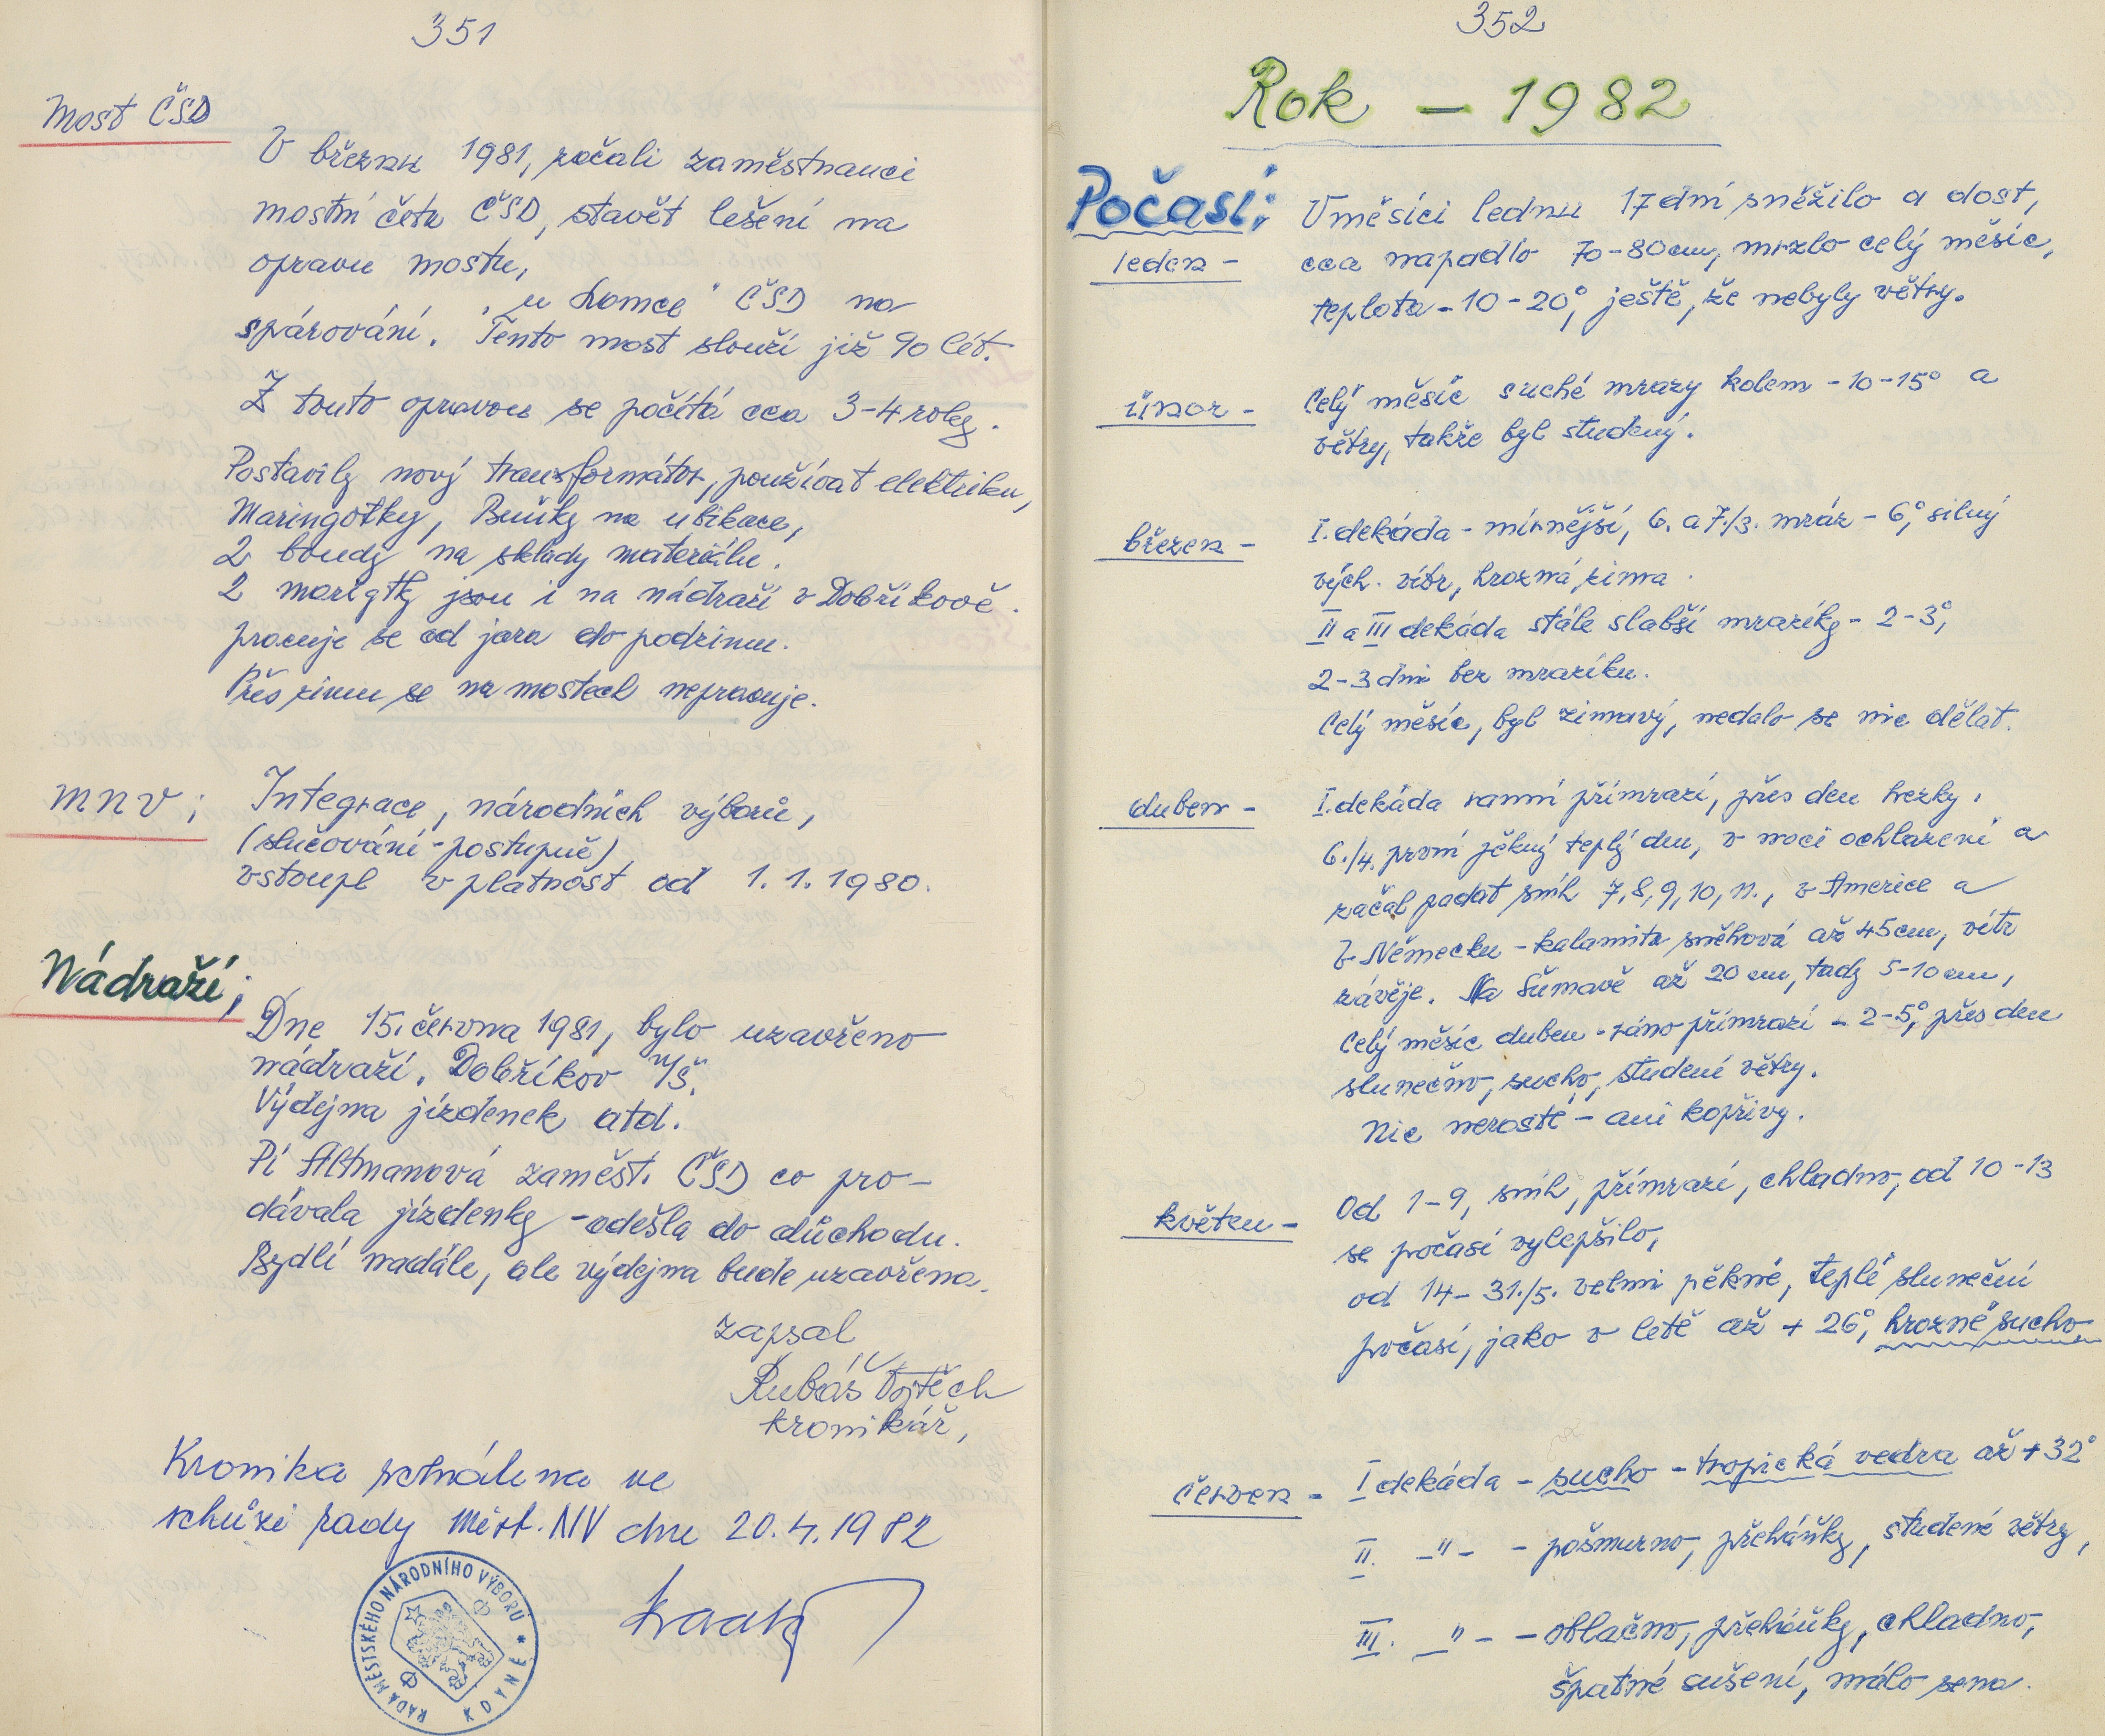 351
Most ČSD
V březnu 1981, začali zaměstnanci
mostní četa ČSD, stavět lešení na
opravu mostu,
„u Lomce" ČSD na
spárování. Tento most slouží již 90 lét.
Z touto opravou se počítá cca 3-4 roky.
Postavily nový transformátor, používat elektriku,
Maringotky, Buňky na ubikace,
2 boudy na sklady materiálu.
2 marigtky jsou i na nádraží v Dobříkově.
pracuje se od jara do podzimu.
Přes zimu se na mostech nepracuje.
MNV;
Integrace, národních výborů,
(slučování - postupně)
vstoupl v platnost od 1.1.1980.
Nádraží;
Dne 15. června 1981, bylo uzavřeno
nádraží. Dobříkov u/Š.
Výdejna jízdenek atd.
Pí Altmanová zaměst. ČSD co pro-
dávala jízdenky - odešla do důchodu.
Bydlí nadále, ale výdejna bude uzavřena.
zapsal
Rubáš Vojtěch
kronikář,
Kronika schválena ve
schůzi rady Míst. NV dne 20.4.1982
RADA MĚSTSKÉHO NÁRODNÍHO VÝBORU * KDYNĚ
352
Rok - 1982
Počasí;
leden -
V měsíci lednu 17 dní sněžilo a dost,
cca napadlo 70-80cm, mrzlo celý měsíc,
teplota - 10 - 20°, ještě, že nebyly větry.
únor -
Celý měsíc suché mrazy kolem - 10 - 15° a
větry, takže byl studený.
březen -
I. dekáda - mírnější, 6. a 7./3. mráz - 6°, silný
vých. vítr, hrozná zima.
II a III dekáda stále slabší mrazíky - 2 - 3°,
2-3 dni bez mrazíku.
Celý měsíc, byl zimavý, nedalo se nic dělat.
duben -
I. dekáda ranní přímrazí, přes den hezky.
6./4. první pěkný teplý den, v noci ochlazení a
začal padat sníh 7, 8, 9, 10, 11., v Americe a
v Německu - kalamita sněhová až 45cm, vítr
závěje. Na Šumavě až 20 cm, tady 5-10 cm,
Celý měsíc duben - ráno přímrazí - 2-5°, přes den
slunečno, sucho, studené větry.
Nic neroste - ani kopřivy.
květen -
Od 1-9, sníh, přímrazí, chladno, od 10-13
se počasí vylepšilo,
od 14-31./5. velmi pěkné, teplé sluneční
počasí, jako v létě až + 26°, hrozné sucho
červen -
I dekáda - sucho - tropická vedra až + 32°
II. -"- - pošmurno, přeháňky, studené větry,
III. -"- - oblačno, přeháňky, chladno,
špatné sušení, málo sena.